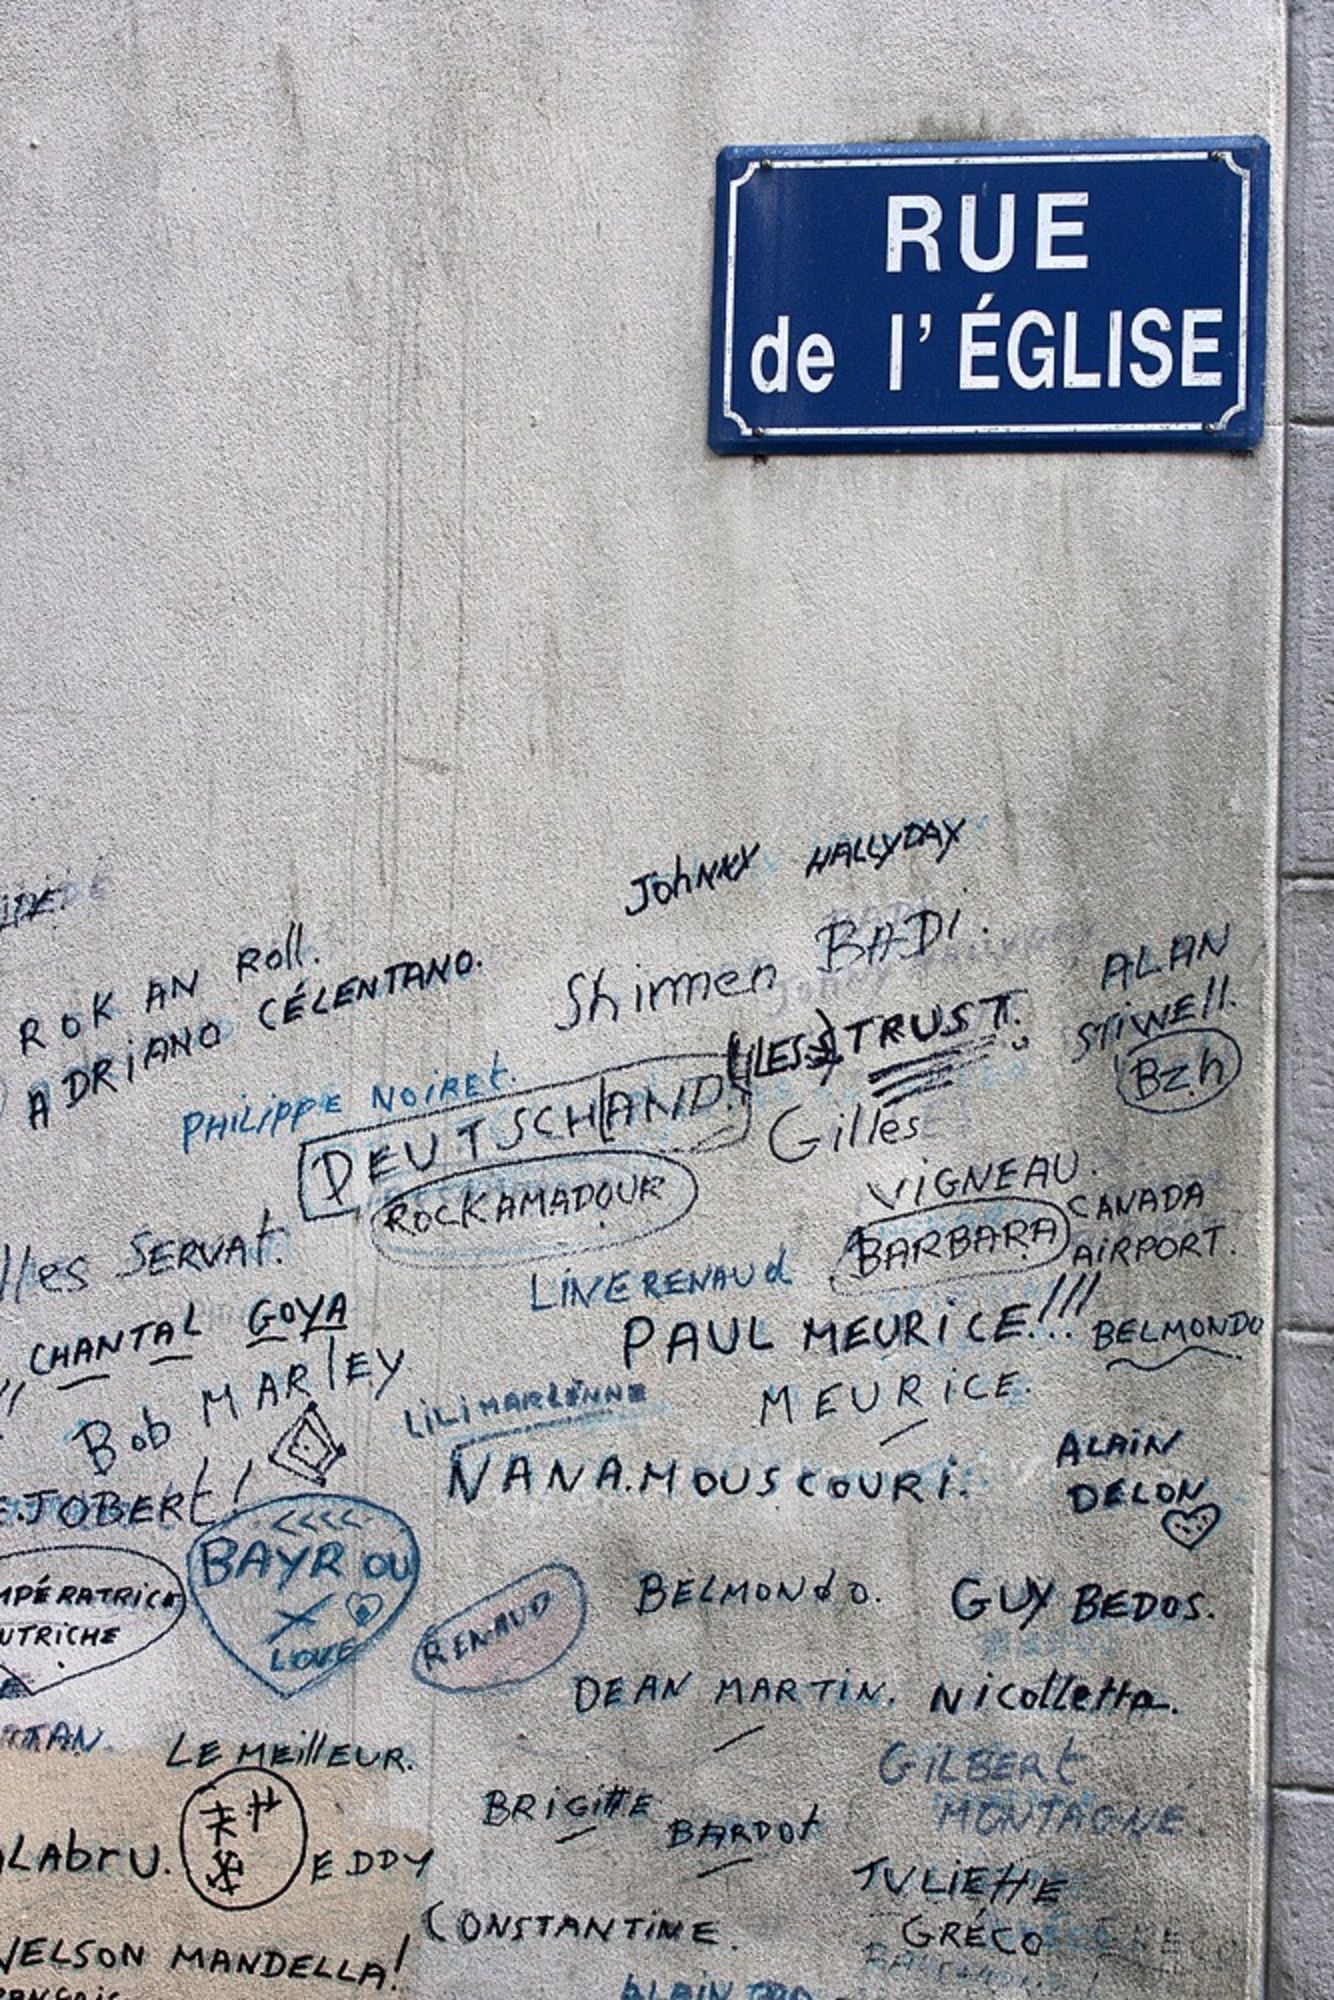 RUE
de l'ÉGLISE
JOHNNY HALLYDAY
ROK AN ROLL.
ADRIANO CÉLENTANO.
Shinmen BADI.
ALAN
STIWELL.
Bzh
(LES) TRUST.
PHILIPPE NOIRET.
DEUTSCHLAND.
ROCKAMADOUR
Gilles
VIGNEAU.
CANADA
AIRPORT.
BARBARA
lles SERVAT.
LINE RENAUD
CHANTAL GOYA
PAUL MEURICE!!!
BELMONDO
Bob MARLEY
LILI MARLÈNNE
MEURICE.
NANA.MOUSCOURI.
ALAIN
DELON
E.JOBERT!
BAYROU
LOVE
MPÉRATRICE
UTRICHE
RENAUD
BELMONDO.
GUY BEDOS.
DEAN MARTIN.
NICOLLETTA.
TAN.
LE MEILLEUR.
GILBERT
MONTAGNE.
BRIGITTE
BARDOT
LABRU.
EDDY
JULIETTE
GRÉCO
CONSTANTINE.
NELSON MANDELLA!
ALAIN